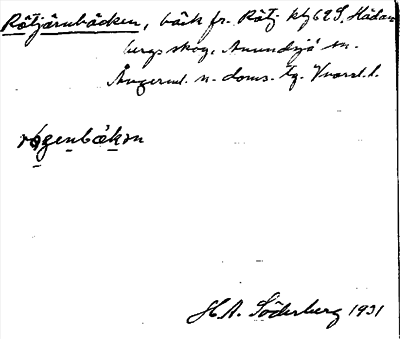 Rötjärnbäcken, bäck fr. Rötj kbl 62S, Mädan-
bergs skog, Anundsjö sn.
Ångerml. n. doms. tg. Vnorrl. l.
rögenbäkən
H. A. Söderberg 1931